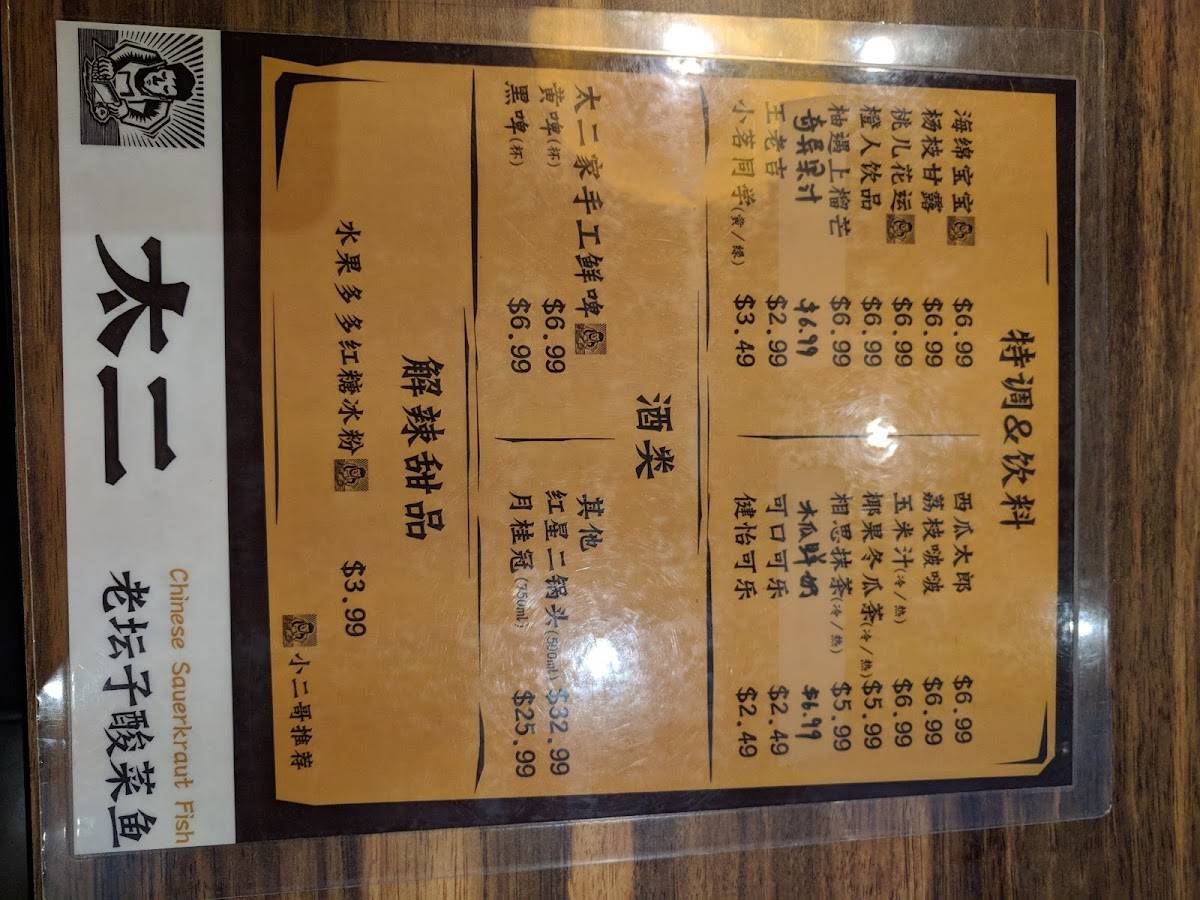 特调&饮料
海绵宝宝 $6.99
杨枝甘露 $6.99
桃儿花运 $6.99
橙人饮品 $6.99
柚遇上榴芒 $6.99
奇异果汁 $6.99
王老吉 $2.99
小茗同学(黄/绿) $3.49
西瓜太郎 $6.99
荔枝啵啵 $6.99
玉米汁(冷/热) $6.99
椰果冬瓜茶(冷/热) $5.99
相思抹茶(冷/热) $5.99
木瓜鲜奶 $6.99
可口可乐 $2.49
健怡可乐 $2.49
酒类
太二家手工鲜啤
黄啤(杯) $6.99
黑啤(杯) $6.99
其他
红星二锅头(500ml) $32.99
月桂冠(750ml) $25.99
解辣甜品
水果多多红糖冰粉 $3.99
小二哥推荐
太二
Chinese Sauerkraut Fish
老坛子酸菜鱼